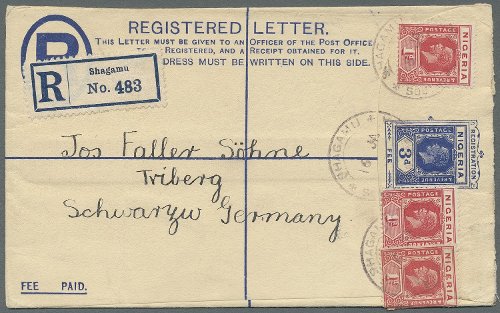 REGISTERED LETTER.
THIS LETTER MUST BE GIVEN TO AN OFFICER OF THE POST OFFICE
TO BE REGISTERED, AND A RECEIPT OBTAINED FOR IT.
DRESS MUST BE WRITTEN ON THIS SIDE.
R
R
Shagamu
No. 483
Jos Faller Söhne
Triberg
Schwarzw Germany
FEE PAID.
NIGERIA
POSTAGE
REVENUE
1d
SHAGAMU
REGISTRATION
NIGERIA
POSTAGE
REVENUE
3d
FEE
SHAGAMU
NIGERIA
POSTAGE
REVENUE
1d
NIGERIA
POSTAGE
REVENUE
1d
SHAGAMU